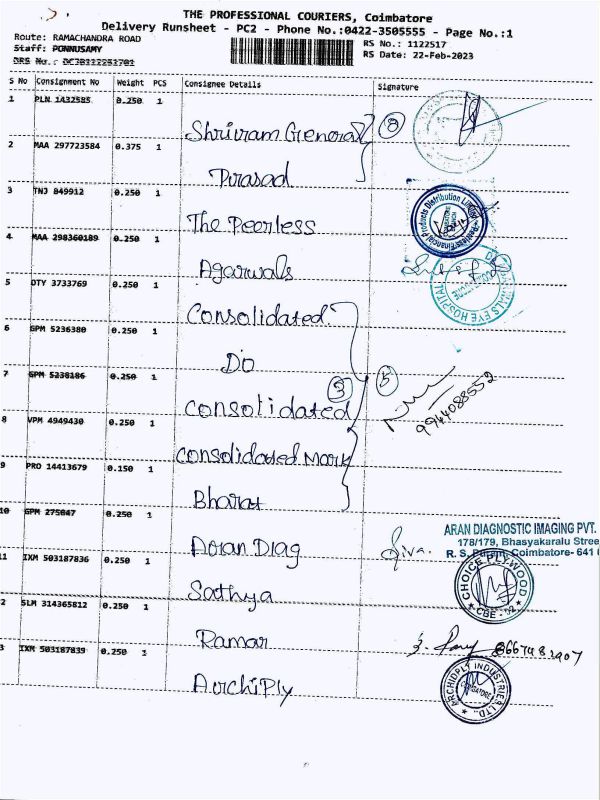 THE PROFESSIONAL COURIERS, Coimbatore
Delivery Runsheet - PC2 - Phone No.:0422-3505555 - Page No.:1
Route: RAMACHANDRA ROAD
RS No.: 1122517
Staff: PONNUSAMY
RS Date: 22-Feb-2023
DRS No.: DC3B112251701
S No Consignment No Weight PCS Consignee Details Signature
1 PLN 1432585 0.250 1
Shriram General (8)
2 MAA 297723584 0.375 1
Pirasad
3 TNJ 849912 0.250 1
The Peerless
4 MAA 298360189 0.250 1
Agarwals
5 DTY 3733769 0.250 1
Consolidated
6 GPM 5236380 0.250 1
Do
7 GPM 5238186 0.250 1
(3) (5)
Consolidated
9944088552
8 VPM 4949430 0.250 1
Consolidated Mark
9 PRO 14413679 0.150 1
Bharat
10 GPM 275047 0.250 1
ARAN DIAGNOSTIC IMAGING PVT.
178/179, Bhasyakaralu Stree
Aran Diag Siva. R. S. Puram, Coimbatore- 641 0
11 IXM 503187836 0.250 1
CHOICE PLYWOOD
CBE - 02
Sathya
2 SLM 314365812 0.250 1
Ramar
3 IXM 503187839 0.250 1
ARCHIDPLY INDUSTRIES LTD.,
ArchiPly